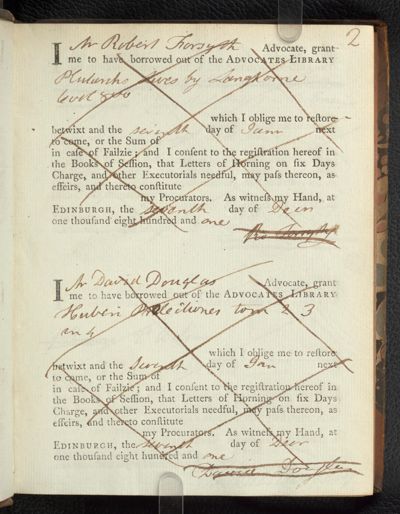 2
I Mr Robert Forsyth Advocate, grant
me to have borrowed out of the ADVOCATES LIBRARY
Plutarchs Lives by Langhorne
6 vol 8vo
which I oblige me to restore
betwixt and the seventh day of Jany next
to come, or the Sum of
in case of Failzie; and I consent to the registration hereof in
the Books of Session, that Letters of Horning on six Days
Charge, and other Executorials needful, may pass thereon, as
effeirs, and thereto constitute
my Procurators. As witness my Hand, at
EDINBURGH, the seventh day of Decr
one thousand eight hundred and one
Ro. Forsyth
I Mr David Douglas Advocate, grant
me to have borrowed out of the ADVOCATES LIBRARY
Huberi Prelectiones tom 2 3
in 4
which I oblige me to restore
betwixt and the Seventh day of Jan next
to come, or the Sum of
in case of Failzie; and I consent to the registration hereof in
the Books of Session, that Letters of Horning on six Days
Charge, and other Executorials needful, may pass thereon, as
effeirs, and thereto constitute
my Procurators. As witness my Hand, at
EDINBURGH, the seventh day of Decr
one thousand eight hundred and one
David Douglas